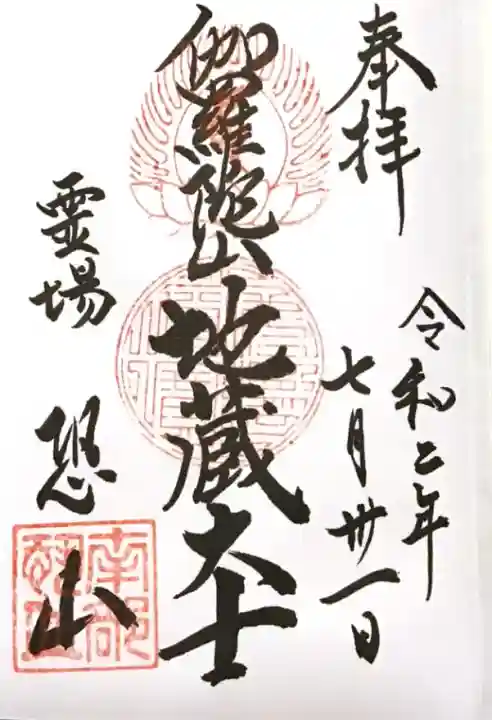 奉拝
令和二年
七月卅一日
伽羅陀山地蔵大士
霊場 恐山
南部